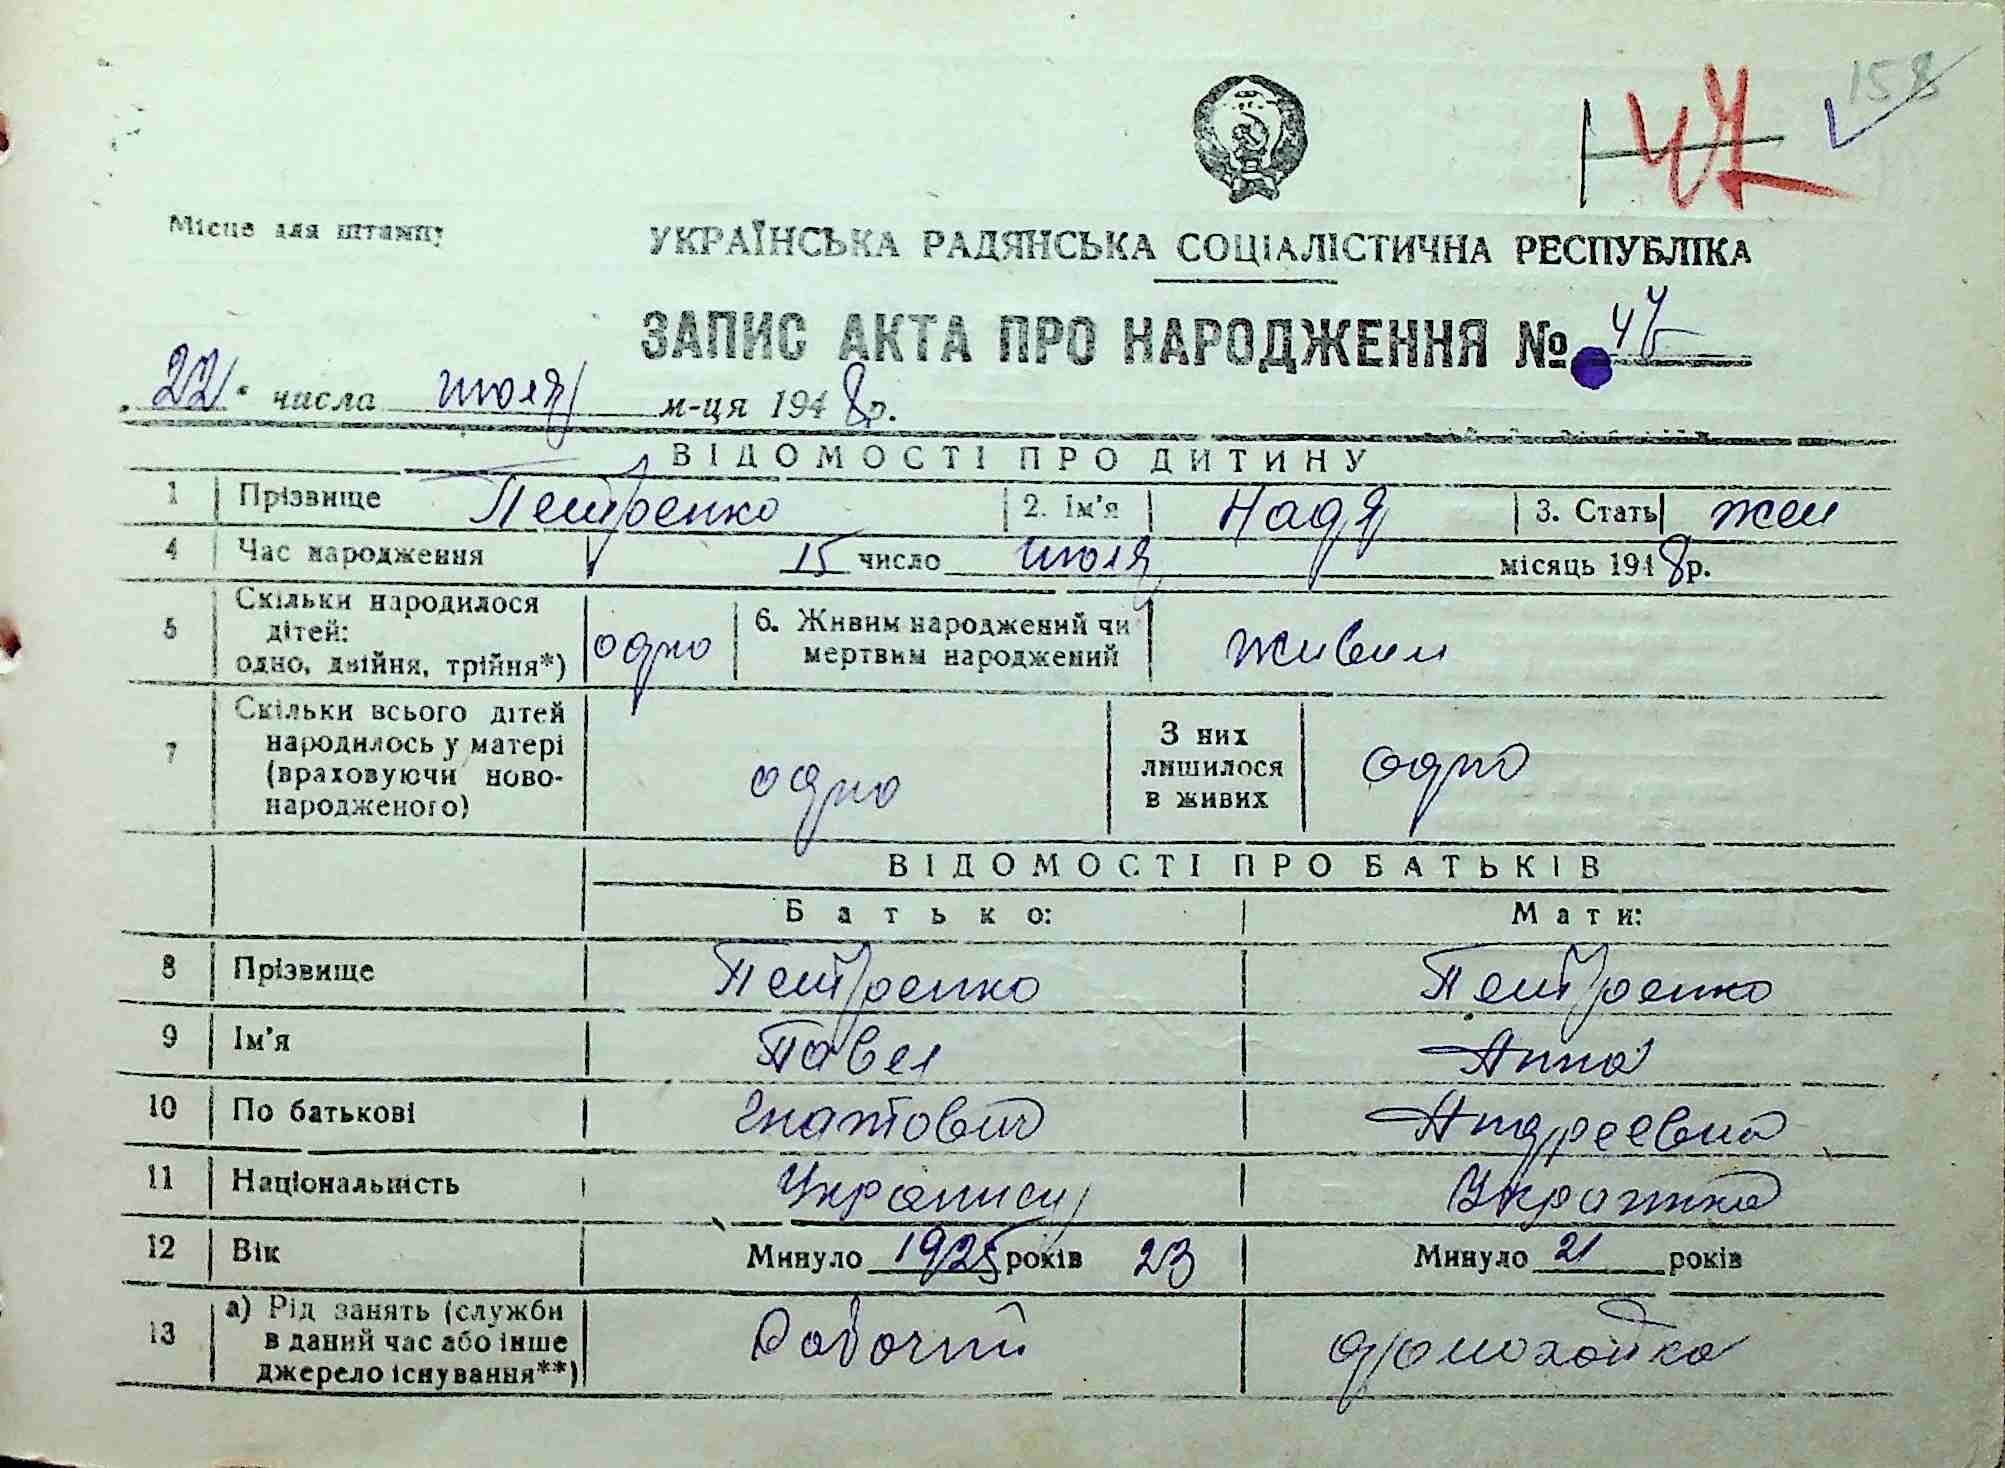 158
47
Місце для штампу
УКРАЇНСЬКА РАДЯНСЬКА СОЦІАЛІСТИЧНА РЕСПУБЛІКА
ЗАПИС АКТА ПРО НАРОДЖЕННЯ № 47
"22" числа июля м-ця 1948р.
ВІДОМОСТІ ПРО ДИТИНУ
1 Прізвище Петренко 2. Ім'я Надя 3. Стать жен
4 Час народження 15 число июля місяць 1948р.
5 Скільки народилося дітей: одно, двійня, трійня*) одно 6. Живим народжений чи мертвим народжений живим
7 Скільки всього дітей народилось у матері (враховуючи ново-народженого) одно З них лишилося в живих одно
ВІДОМОСТІ ПРО БАТЬКІВ
Батько: Мати:
8 Прізвище Петренко Петренко
9 Ім'я Павел Анна
10 По батькові Гнатович Андреевна
11 Національність Украинец Украинка
12 Вік Минуло 1925 років 23 Минуло 21 років
13 а) Рід занять (служби в даний час або інше джерело існування**) Рабочий домохозяйка